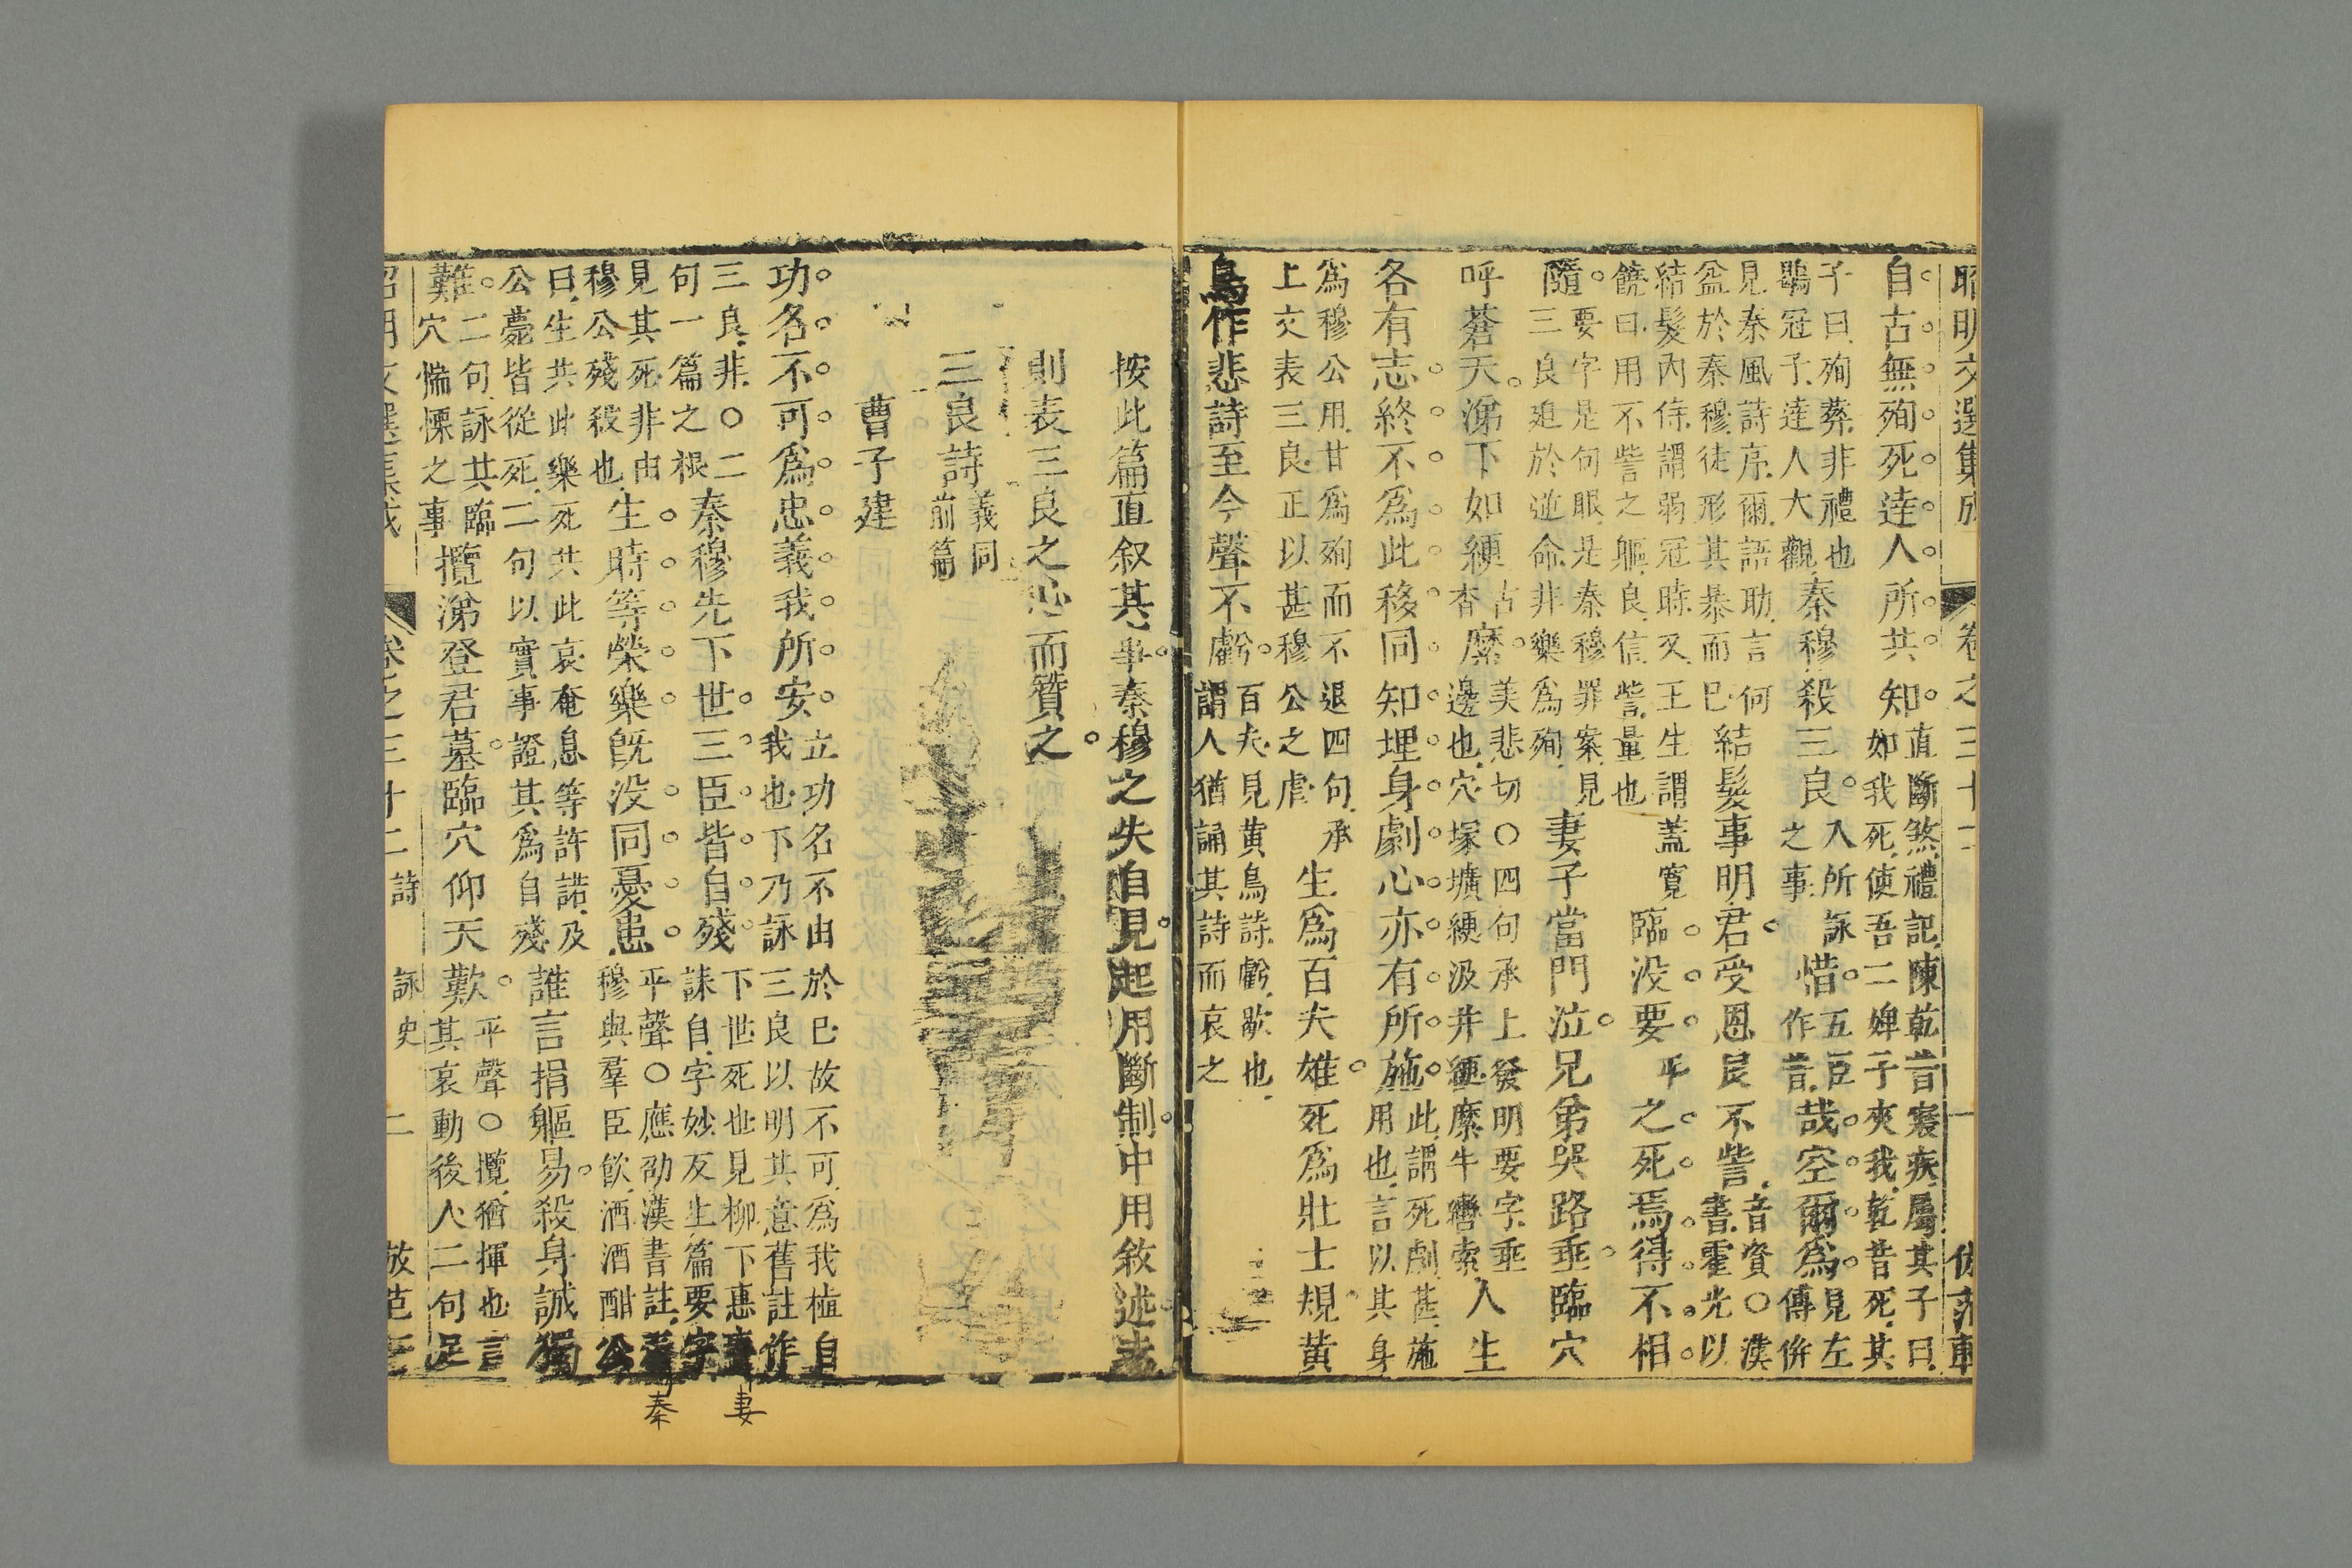 昭明文選集成
卷之三十二
自古無殉死達人所共知
直斷煞禮記陳乾昔寢疾屬其子曰
如我死使吾二婢子夾我乾昔死其
子曰殉葬非禮也
鶡冠子達人大觀
秦穆殺三良
入所詠
之事
惜
五臣
作昔
哉空爾爲
見左
傳併
見秦風詩序爾語助言何
盆於秦穆徒形其暴而已
結髮事明君受恩良不訾
音資○漢
書霍光以
結髮內侍謂弱冠時又王生謂蓋寬
饒曰用不訾之軀良信訾量也
臨没要
平
之死焉得不相
隨
要字是句眼是秦穆罪案見
三良迫於逆命非樂爲殉
妻子當門泣兄弟哭路垂臨穴
呼蒼天涕下如綆
古
杳
縻
美悲切○四句承上發明要字垂
邊也穴塚壙綆汲井綆縻牛轡索
人生
各有志終不爲此移同知埋身劇心亦有所施
此謂死劇甚施
用也言以其身
爲穆公用甘爲殉而不退四句承
上文表三良正以甚穆公之虐
生爲百夫雄死爲壯士規黃
鳥作悲詩至今聲不虧
百夫見黃鳥詩虧歇也
謂人猶誦其詩而哀之
按此篇直叙其事秦穆之失自見起用斷制中用敘述
則表三良之忠而贊之
三良詩
義同
前篇
曹子建
功名不可爲忠義我所安
立功名不由於巳故不可爲我植自
我也下乃詠三良以明其意舊註作
三良非○二
句一篇之根
秦穆先下世三臣皆自殘
下世死也見柳下惠妻
誄自字妙反生篇要字
見其死非由
穆公殘殺也
生時等榮樂旣没同憂患
平聲○應劭漢書註秦
穆與羣臣飮酒酒酣公
曰生共此樂死共此哀奄息等許諾及
公薨皆從死二句以實事證其爲自殘
誰言捐軀易殺身誠獨
難
二句詠其臨
穴惴慄之事
攬涕登君墓臨穴仰天歎
平聲○攬猶揮也言
其哀動後人二句足
妻
秦
卷之三十二詩
詠史
二